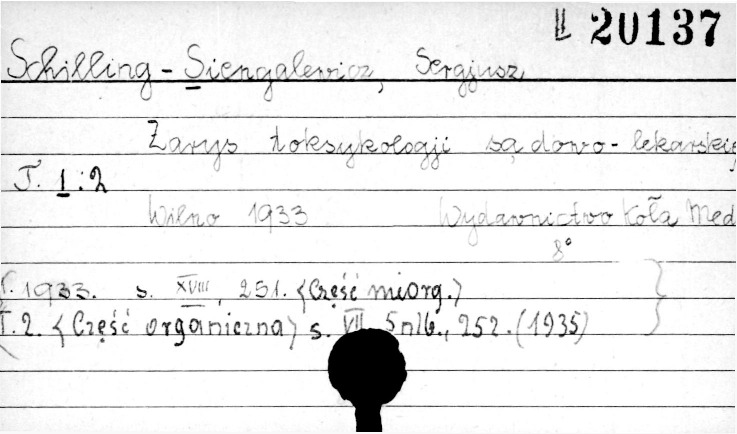 II 20137
Schilling-Siengalewicz, Sergjusz
Zarys toksykologji sądowo-lekarskie
T. 1:2
Wilno 1933 Wydawnictwo Koła Med
8°
1933. s. XVIII, 251. <Część niorg.>
T.2. <Część organiczna> s. VII, 5 nlb., 252. (1935)